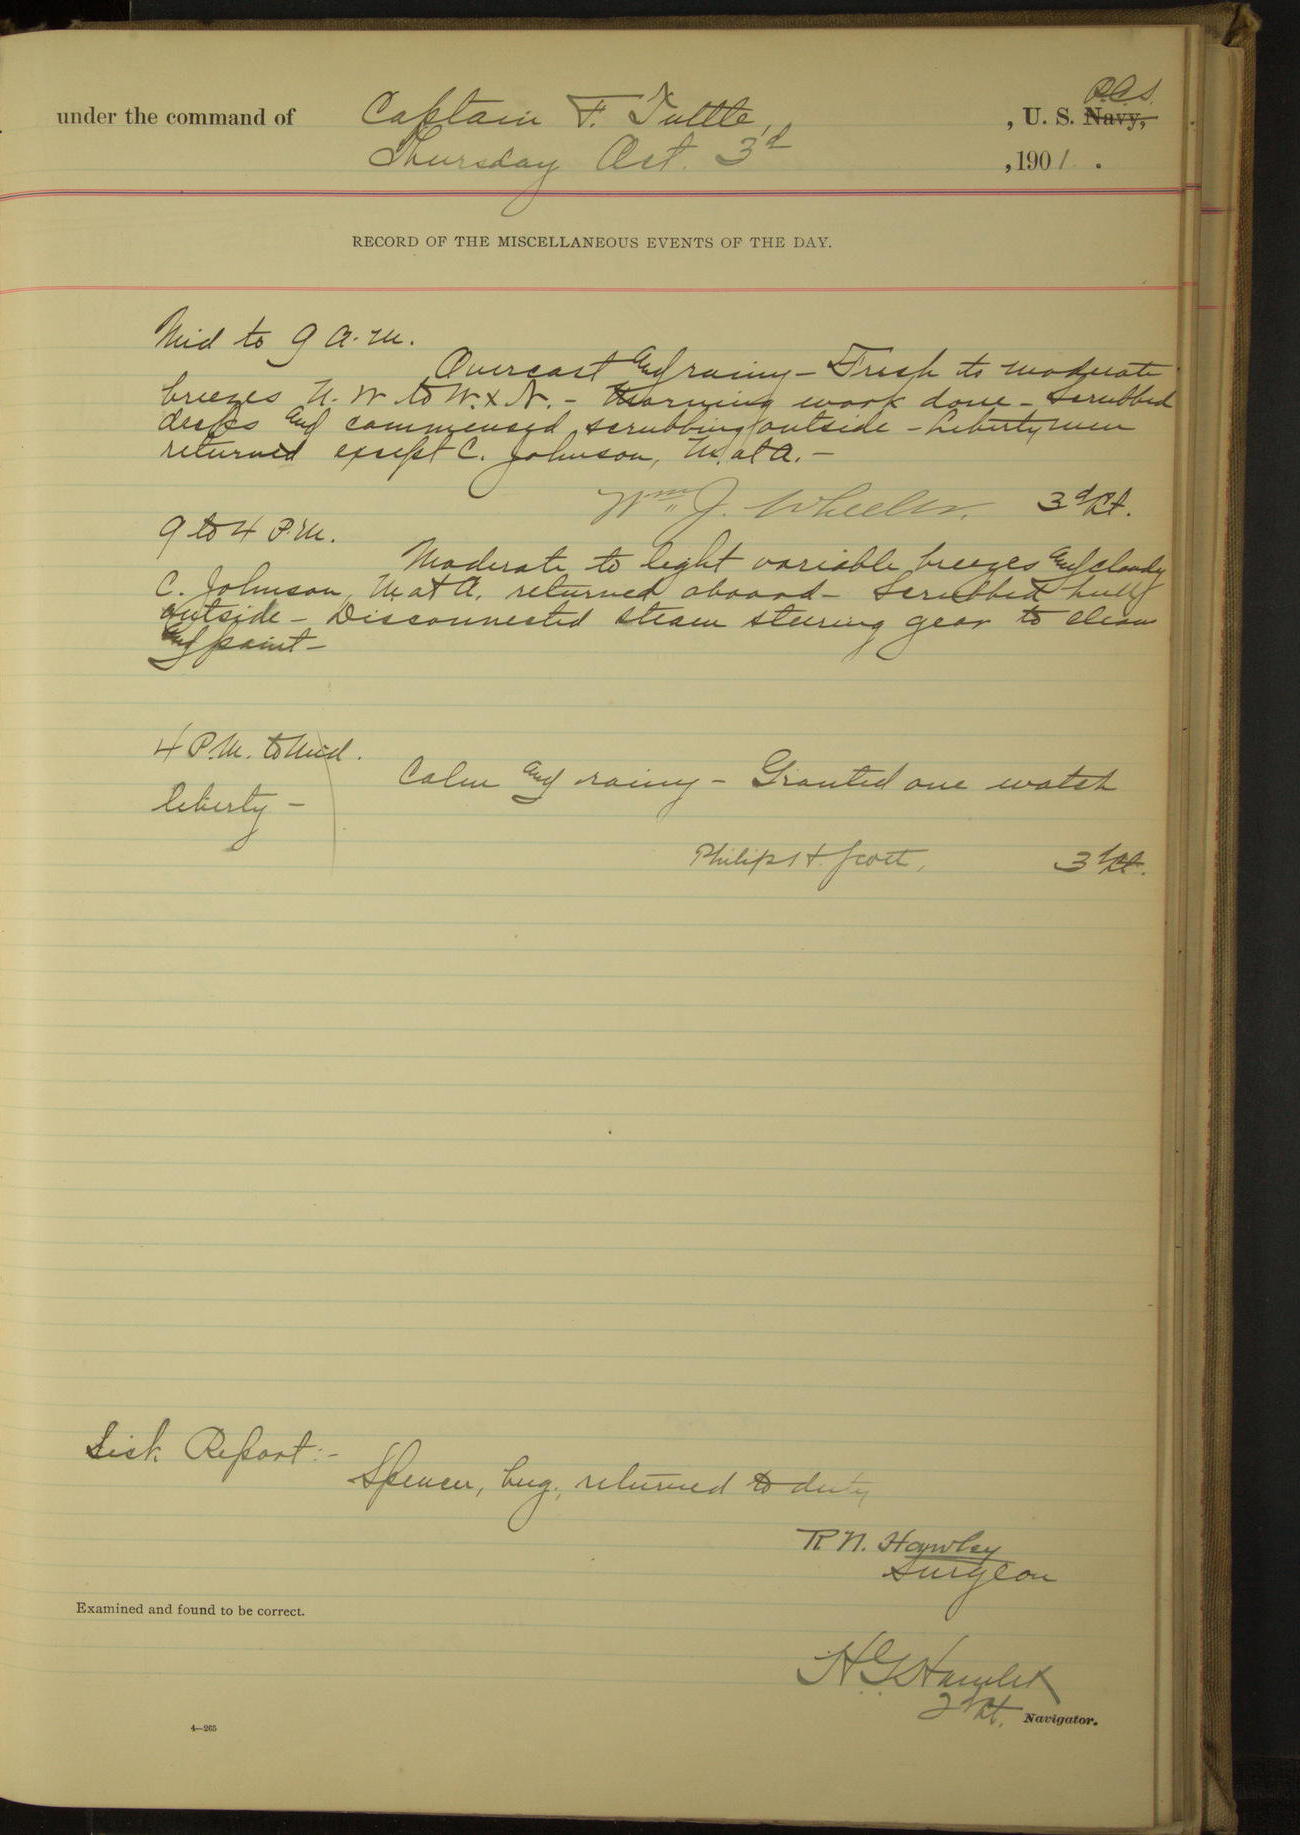 R.C.S.
under the command of Captain F. Tuttle, , U. S. Navy,
Thursday Oct. 3d , 1901 .
RECORD OF THE MISCELLANEOUS EVENTS OF THE DAY.
Mid to 9 A.M.
Overcast and rainy – Fresh to moderate
breezes N. W to W. x N. – Morning work done – Scrubbed
decks and commenced scrubbing outside – Libertymen
returned except C. Johnson, M. at A. –
Wm. J. Wheeler. 3d Lt.
9 to 4 P.M.
Moderate to light variable breezes and cloudy
C. Johnson, M at A. returned aboard – Scrubbed hull
outside – Disconnected steam steering gear to clean
and paint –
4 P.M. to Mid.
Calm and rainy – Granted one watch
liberty –
Philip H. Scott, 3d Lt.
Sick Report:–
Spencer, bug., returned to duty
R N. Hawley
Surgeon
Examined and found to be correct.
H G Hamlet
2d Lt. Navigator.
4—265